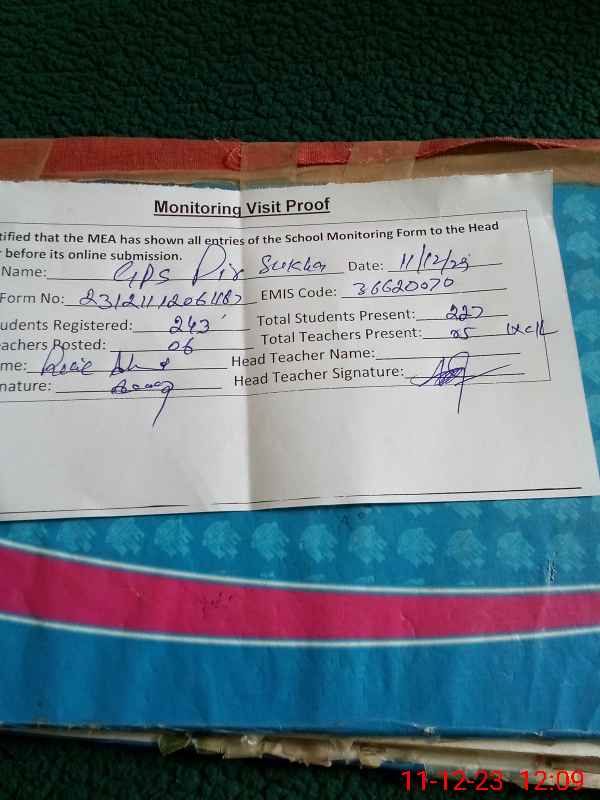 Monitoring Visit Proof
tified that the MEA has shown all entries of the School Monitoring Form to the Head
r before its online submission.
Name: GPS Pir Sukha Date: 11/12/23
Form No: EMIS Code: 36620070
udents Registered: 243 Total Students Present: 227
achers Posted: 06 Total Teachers Present: 05
me: Head Teacher Name:
nature: Head Teacher Signature:
11-12-23 12:09